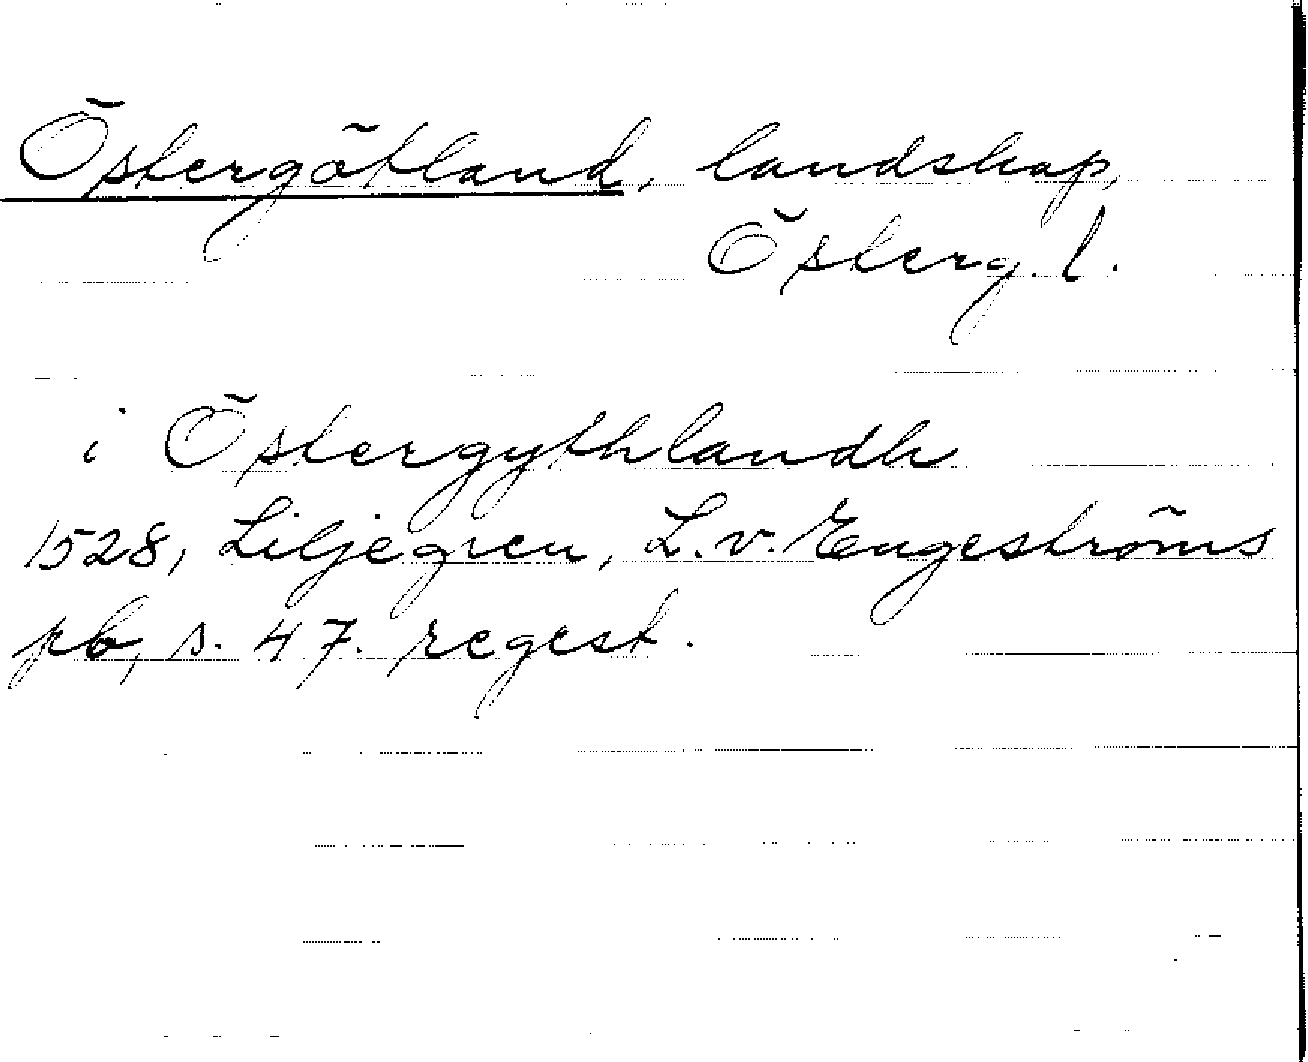 Östergötland, landskap,
Österg. l.
i Östergythlandh
1528, Liljegren, L.v. Engeströms
pb, s. 47. regest.